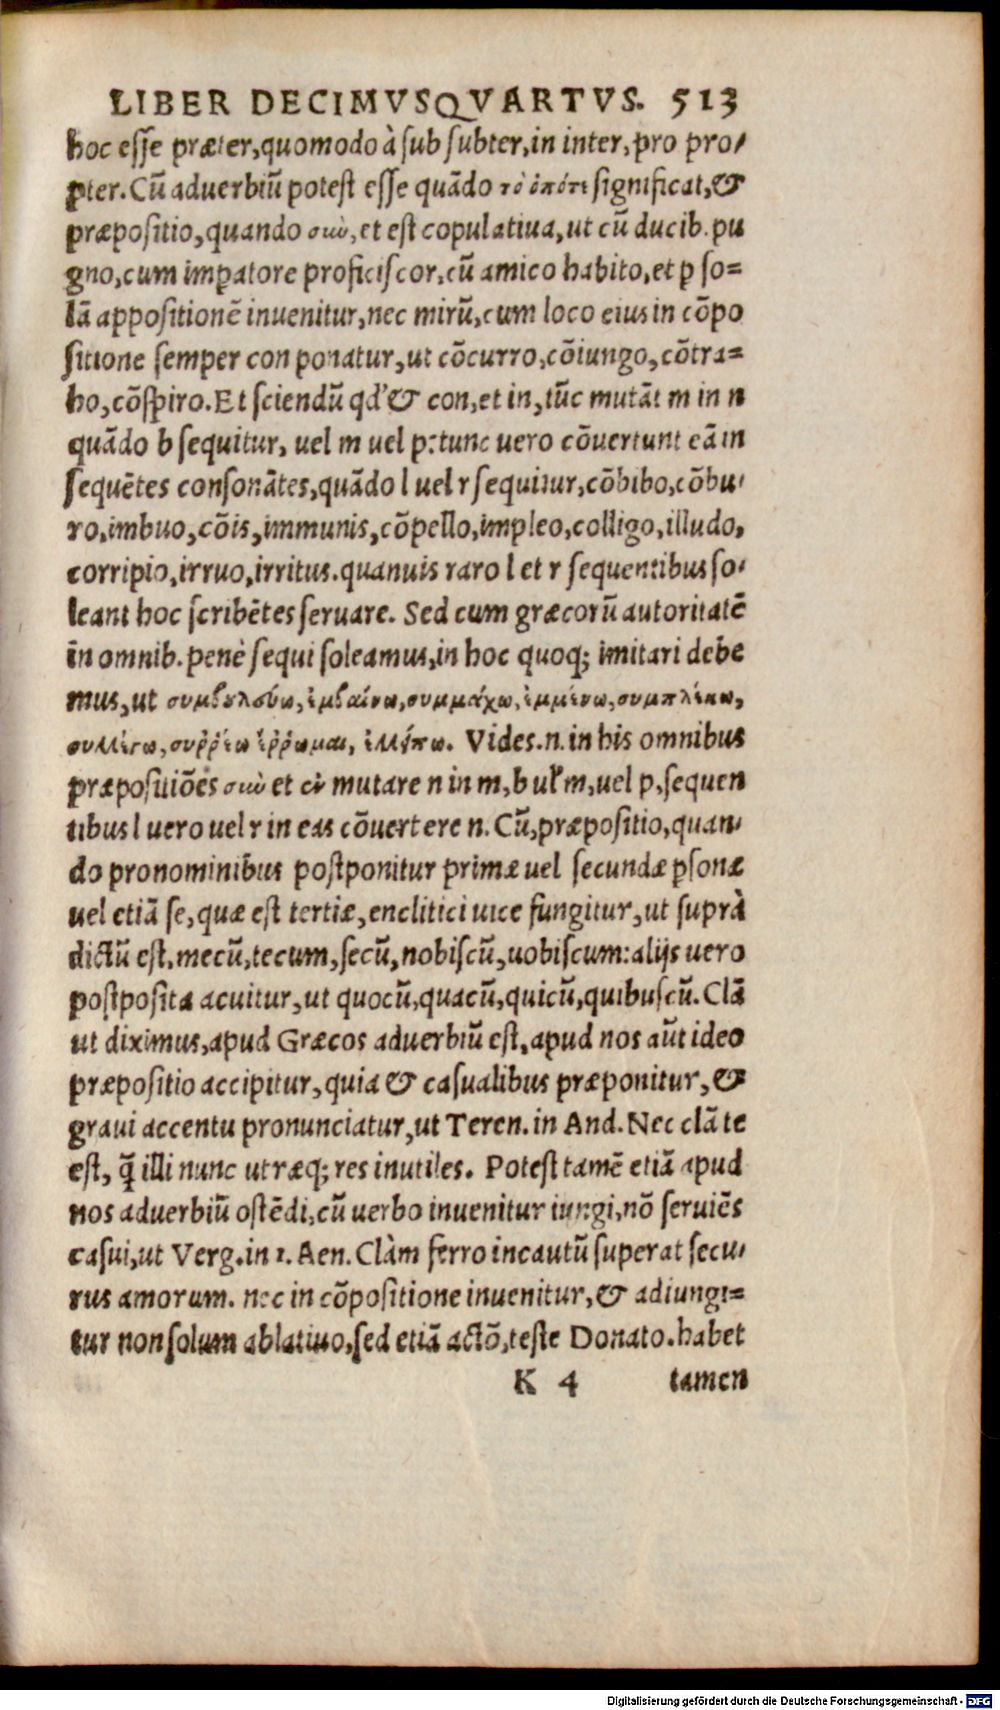 LIBER DECIMVSQVARTVS. 513
hoc esse præter,quomodo à sub subter,in inter,pro pro/
pter.Cũ aduerbiũ potest esse quãdo τὸ ὁπότε significat,&
præpositio,quando σιω,et est copulatiua,ut cũ ducib.pu
gno,cum imp̱atore proficiscor,cũ amico habito,et p̱ so=
lã appositionẽ inuenitur,nec mirũ,cum loco eius in cõpo
sitione semper con ponatur,ut cõcurro,cõiungo,cõtra=
ho,cõspiro.Et sciendũ qd'& con,et in,tũc mutãt m in n
quãdo b sequitur, uel m uel p:tunc uero cõuertunt eã in
sequẽtes consonãtes,quãdo l uel r sequitur,cõbibo,cõbu/
ro,imbuo,cõis,immunis,cõpello,impleo,colligo,illudo,
corripio,irruo,irritus.quanuis raro l et r sequentibus so/
leant hoc scribẽtes seruare. Sed cum græcorũ autoritatẽ
in omnib.penè sequi soleamus,in hoc quoq; imitari debe
mus,ut συμβουλεύω,ἐμβαίνω,συμμάχω,ἐμμένω,συμπλέκω,
συλλέγω,συῤῥέω ἐῤῥωμαι, ἐλλείπω. Vides.n.in his omnibus
præpositiões σιω et ἐν mutare n in m,b uł m,uel p,sequen
tibus l uero uel r in eas cõuertere n. Cũ,præpositio,quan/
do pronominibus postponitur primæ uel secundæ p̱sonæ
uel etiã se,quæ est tertiæ,enclitici uice fungitur,ut suprà
dictũ est,mecũ,tecum,secũ,nobiscũ,uobiscum:alijs uero
postposita acuitur,ut quocũ,quacũ,quicũ,quibuscũ.Clã
ut diximus,apud Græcos aduerbiũ est,apud nos aũt ideo
præpositio accipitur,quia & casualibus præponitur,&
graui accentu pronunciatur,ut Teren.in And.Nec clã te
est, q̃ illi nunc utræq; res inutiles. Potest tamẽ etiã apud
nos aduerbiũ ostẽdi,cũ uerbo inuenitur iungi,nõ seruiẽs
casui,ut Verg.in 1.Aen.Clàm ferro incautũ superat secu/
rus amorum. nec in cõpositione inuenitur,& adiungi=
tur non solum ablatiuo,sed etiã actõ,teste Donato.habet
K 4 tamen
Digitalisierung gefördert durch die Deutsche Forschungsgemeinschaft - DFG